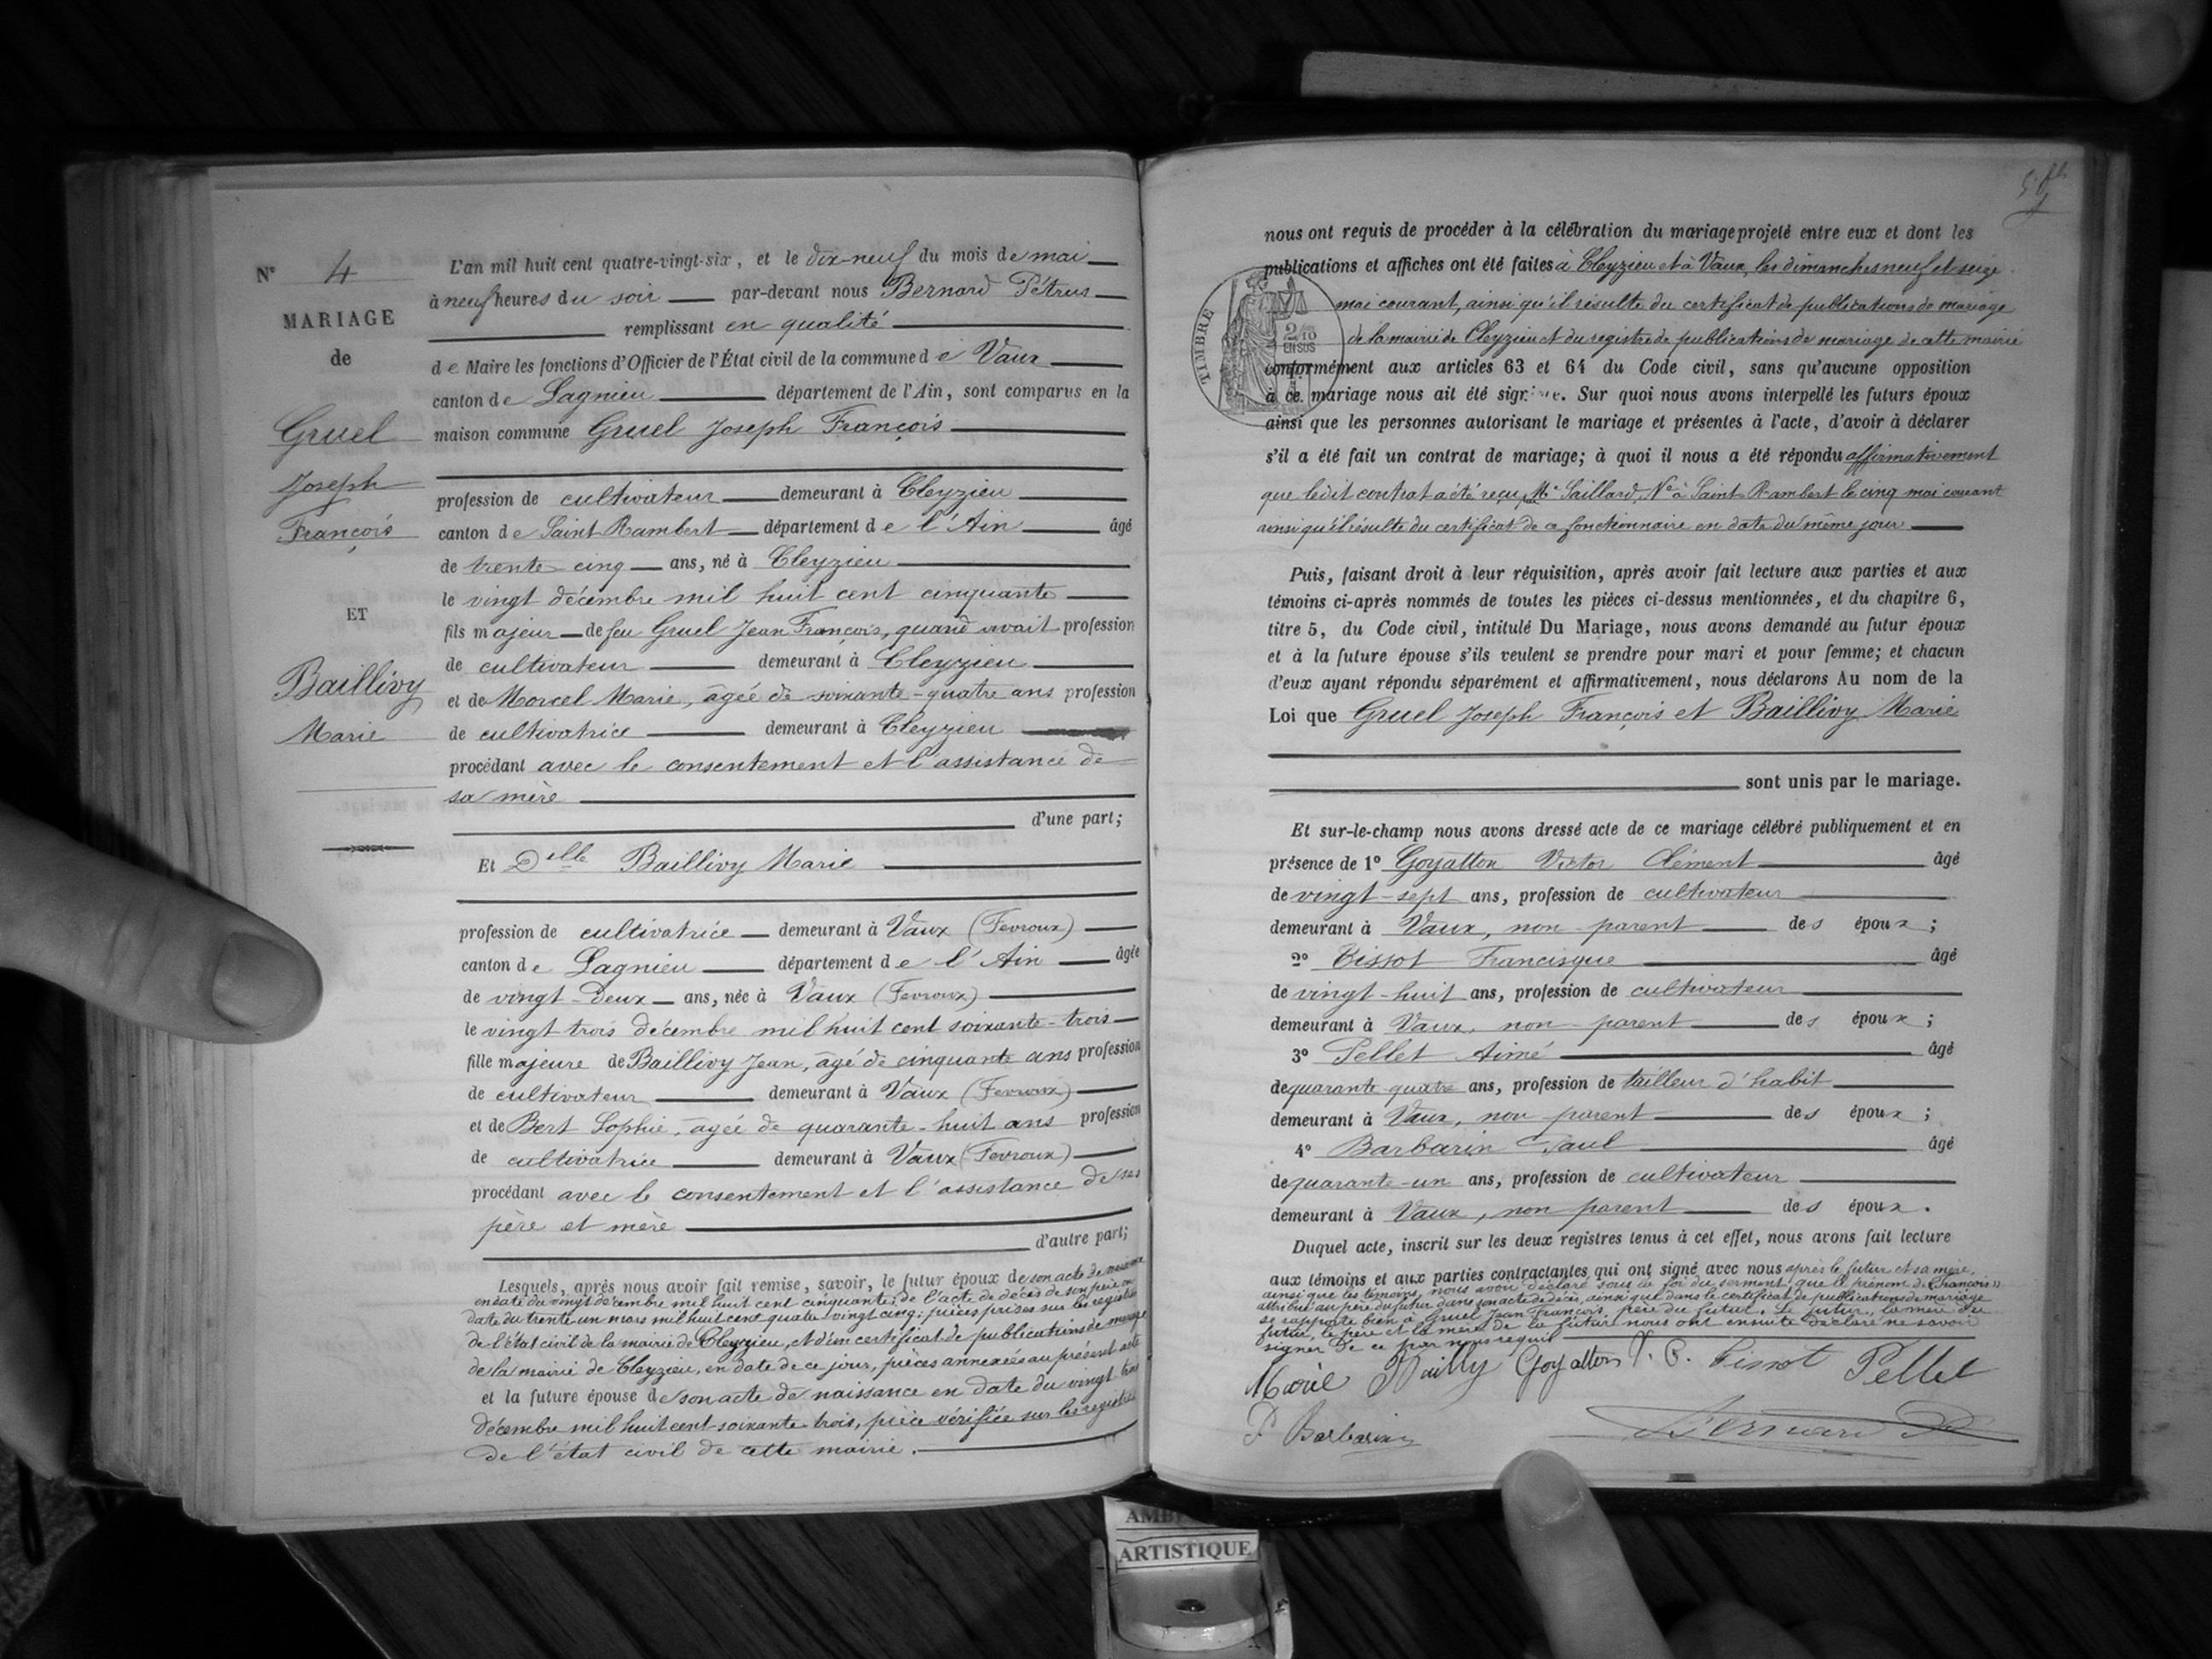 Nº 4
MARIAGE
de
Gruel
Joseph
François
ET
Baillivy
Marie
L'an mil huit cent quatre-vingt-six, et le dix-neuf du mois de mai
à neuf heures du soir par-devant nous Bernard Pétrus
remplissant en qualité
de Maire les fonctions d'Officier de l'État civil de la commune de Vaux
canton de Lagnieu département de l'Ain, sont comparus en la
maison commune Gruel Joseph François
profession de cultivateur demeurant à Cleyzieu
canton de Saint Rambert département de l'Ain âgé
de trente cinq ans, né à Cleyzieu
le vingt décembre mil huit cent cinquante
fils majeur de feu Gruel Jean François, quand vivait profession
de cultivateur demeurant à Cleyzieu
et de Morcel Marie, âgée de soixante-quatre ans profession
de cultivatrice demeurant à Cleyzieu
procédant avec le consentement et l'assistance de
sa mère
d'une part;
Et Delle Baillivy Marie
profession de cultivatrice demeurant à Vaux (Fevroux)
canton de Lagnieu département de l'Ain âgée
de vingt-deux ans, née à Vaux (Fevroux)
le vingt trois décembre mil huit cent soixante-trois
fille majeure de Baillivy Jean, âgé de cinquante ans profession
de cultivateur demeurant à Vaux (Fevroux)
et de Bert Sophie, âgée de quarante-huit ans profession
de cultivatrice demeurant à Vaux (Fevroux)
procédant avec le consentement et l'assistance de ses
père et mère
d'autre part;
Lesquels, après nous avoir fait remise, savoir, le futur époux de son acte de naissance
en date du vingt décembre mil huit cent cinquante; de l'acte de décès de son père en
date du trente un mars mil huit cent quatre-vingt cinq; pièces prises sur les registres
de l'état civil de la mairie de Cleyzieu, et d'un certificat de publications de mariage
de la mairie de Cleyzieu, en date de ce jour, pièces annexées au présent acte
et la future épouse de son acte de naissance en date du vingt trois
décembre mil huit cent soixante-trois, pièce vérifiée sur les registres
de l'état civil de cette mairie.
nous ont requis de procéder à la célébration du mariage projeté entre eux et dont les
publications et affiches ont été faites à Cleyzieu et à Vaux, les dimanches neuf et seize
mai courant, ainsi qu'il résulte du certificat de publications de mariage
de la mairie de Cleyzieu et du registre de publications de mariage de cette mairie
TIMBRE
2/10
EN SUS
conformément aux articles 63 et 64 du Code civil, sans qu'aucune opposition
à ce mariage nous ait été signifiée. Sur quoi nous avons interpellé les futurs époux
ainsi que les personnes autorisant le mariage et présentes à l'acte, d'avoir à déclarer
s'il a été fait un contrat de mariage; à quoi il nous a été répondu affirmativement
que ledit contrat a été reçu Me Saillard, Nre à Saint-Rambert le cinq mai courant
ainsi qu'il résulte du certificat de ce fonctionnaire en date du même jour
Puis, faisant droit à leur réquisition, après avoir fait lecture aux parties et aux
témoins ci-après nommés de toutes les pièces ci-dessus mentionnées, et du chapitre 6,
titre 5, du Code civil, intitulé Du Mariage, nous avons demandé au futur époux
et à la future épouse s'ils veulent se prendre pour mari et pour femme; et chacun
d'eux ayant répondu séparément et affirmativement, nous déclarons Au nom de la
Loi que Gruel Joseph François et Baillivy Marie
sont unis par le mariage.
Et sur-le-champ nous avons dressé acte de ce mariage célébré publiquement et en
présence de 1º Goyatton Victor Clément âgé
de vingt-sept ans, profession de cultivateur
demeurant à Vaux, non parent des époux;
2º Tissot Francisque âgé
de vingt-huit ans, profession de cultivateur
demeurant à Vaux, non parent des époux;
3º Pellet Aimé âgé
de quarante quatre ans, profession de tailleur d'habit
demeurant à Vaux, non parent des époux;
4º Barbarin Paul âgé
de quarante-un ans, profession de cultivateur
demeurant à Vaux, non parent des époux.
Duquel acte, inscrit sur les deux registres tenus à cet effet, nous avons fait lecture
aux témoins et aux parties contractantes qui ont signé avec nous après le futur et sa mère,
ainsi que les témoins, nous avoir déclaré sous la foi du serment que le prénom de «François»
attribué au père du futur dans son acte de décès, ainsi que dans le certificat de publications de mariage
se rapporte bien à Gruel Jean François, père du futur. Le futur, la mère du
futur, le père et la mère de la future nous ont ensuite déclaré ne savoir
signer de ce par nous requis
Marie Bailly Goyatton V. C. Tissot Pellet
P Barbarin Bernard P
ARTISTIQUE